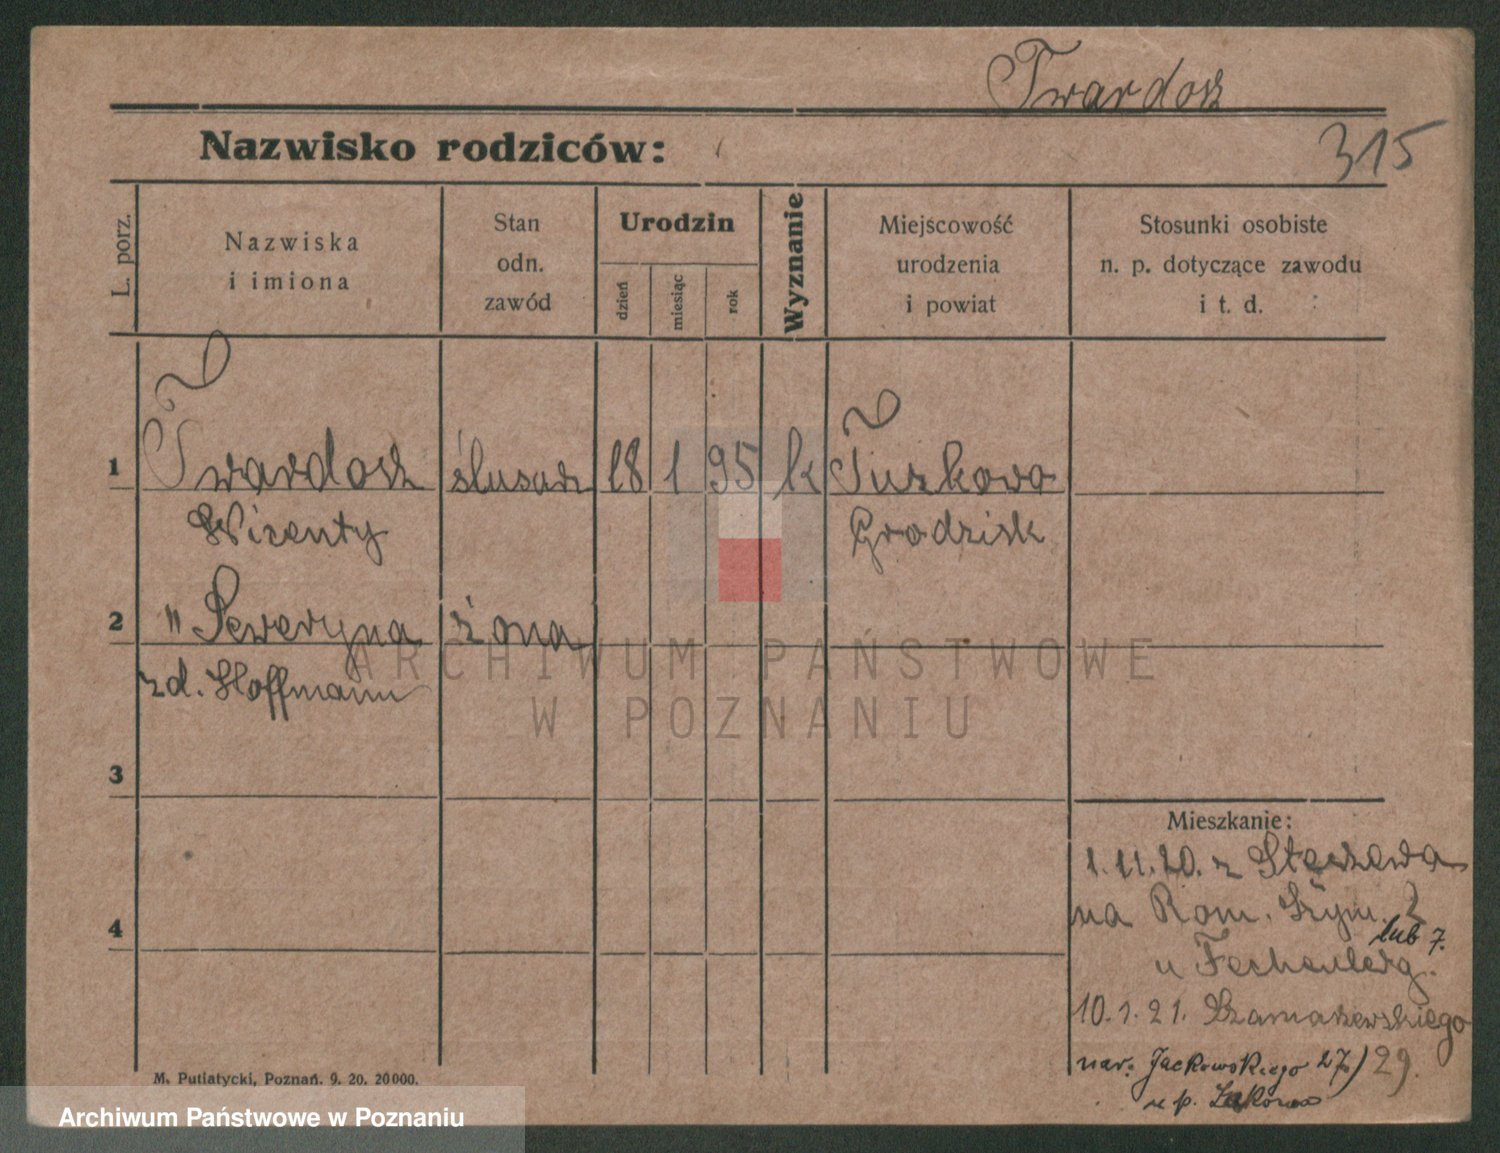 Twardosz
Nazwisko rodziców:
315
L. porz.
Nazwiska
i imiona
Stan
odn.
zawód
Urodzin
dzień
miesiąc
rok
Wyznanie
Miejscowość
urodzenia
i powiat
Stosunki osobiste
n. p. dotyczące zawodu
i t. d.
1 Twardosz ślusarz 18 1 95 k Turkowo
Wicenty Grodzisk
2 " Seweryna żona
zd. Hoffmann
ARCHIWUM PAŃSTWOWE
W POZNANIU
3
Mieszkanie:
1.11.20. z Stęszewa
4
na Rom. Szym. 2
lub 7.
u Fechenberg.
10.1.21. Szamarzewskiego
nar. Jackowskiego 27) 29.
u p.
M. Putiatycki, Poznań. 9. 20. 20000.
Archiwum Państwowe w Poznaniu